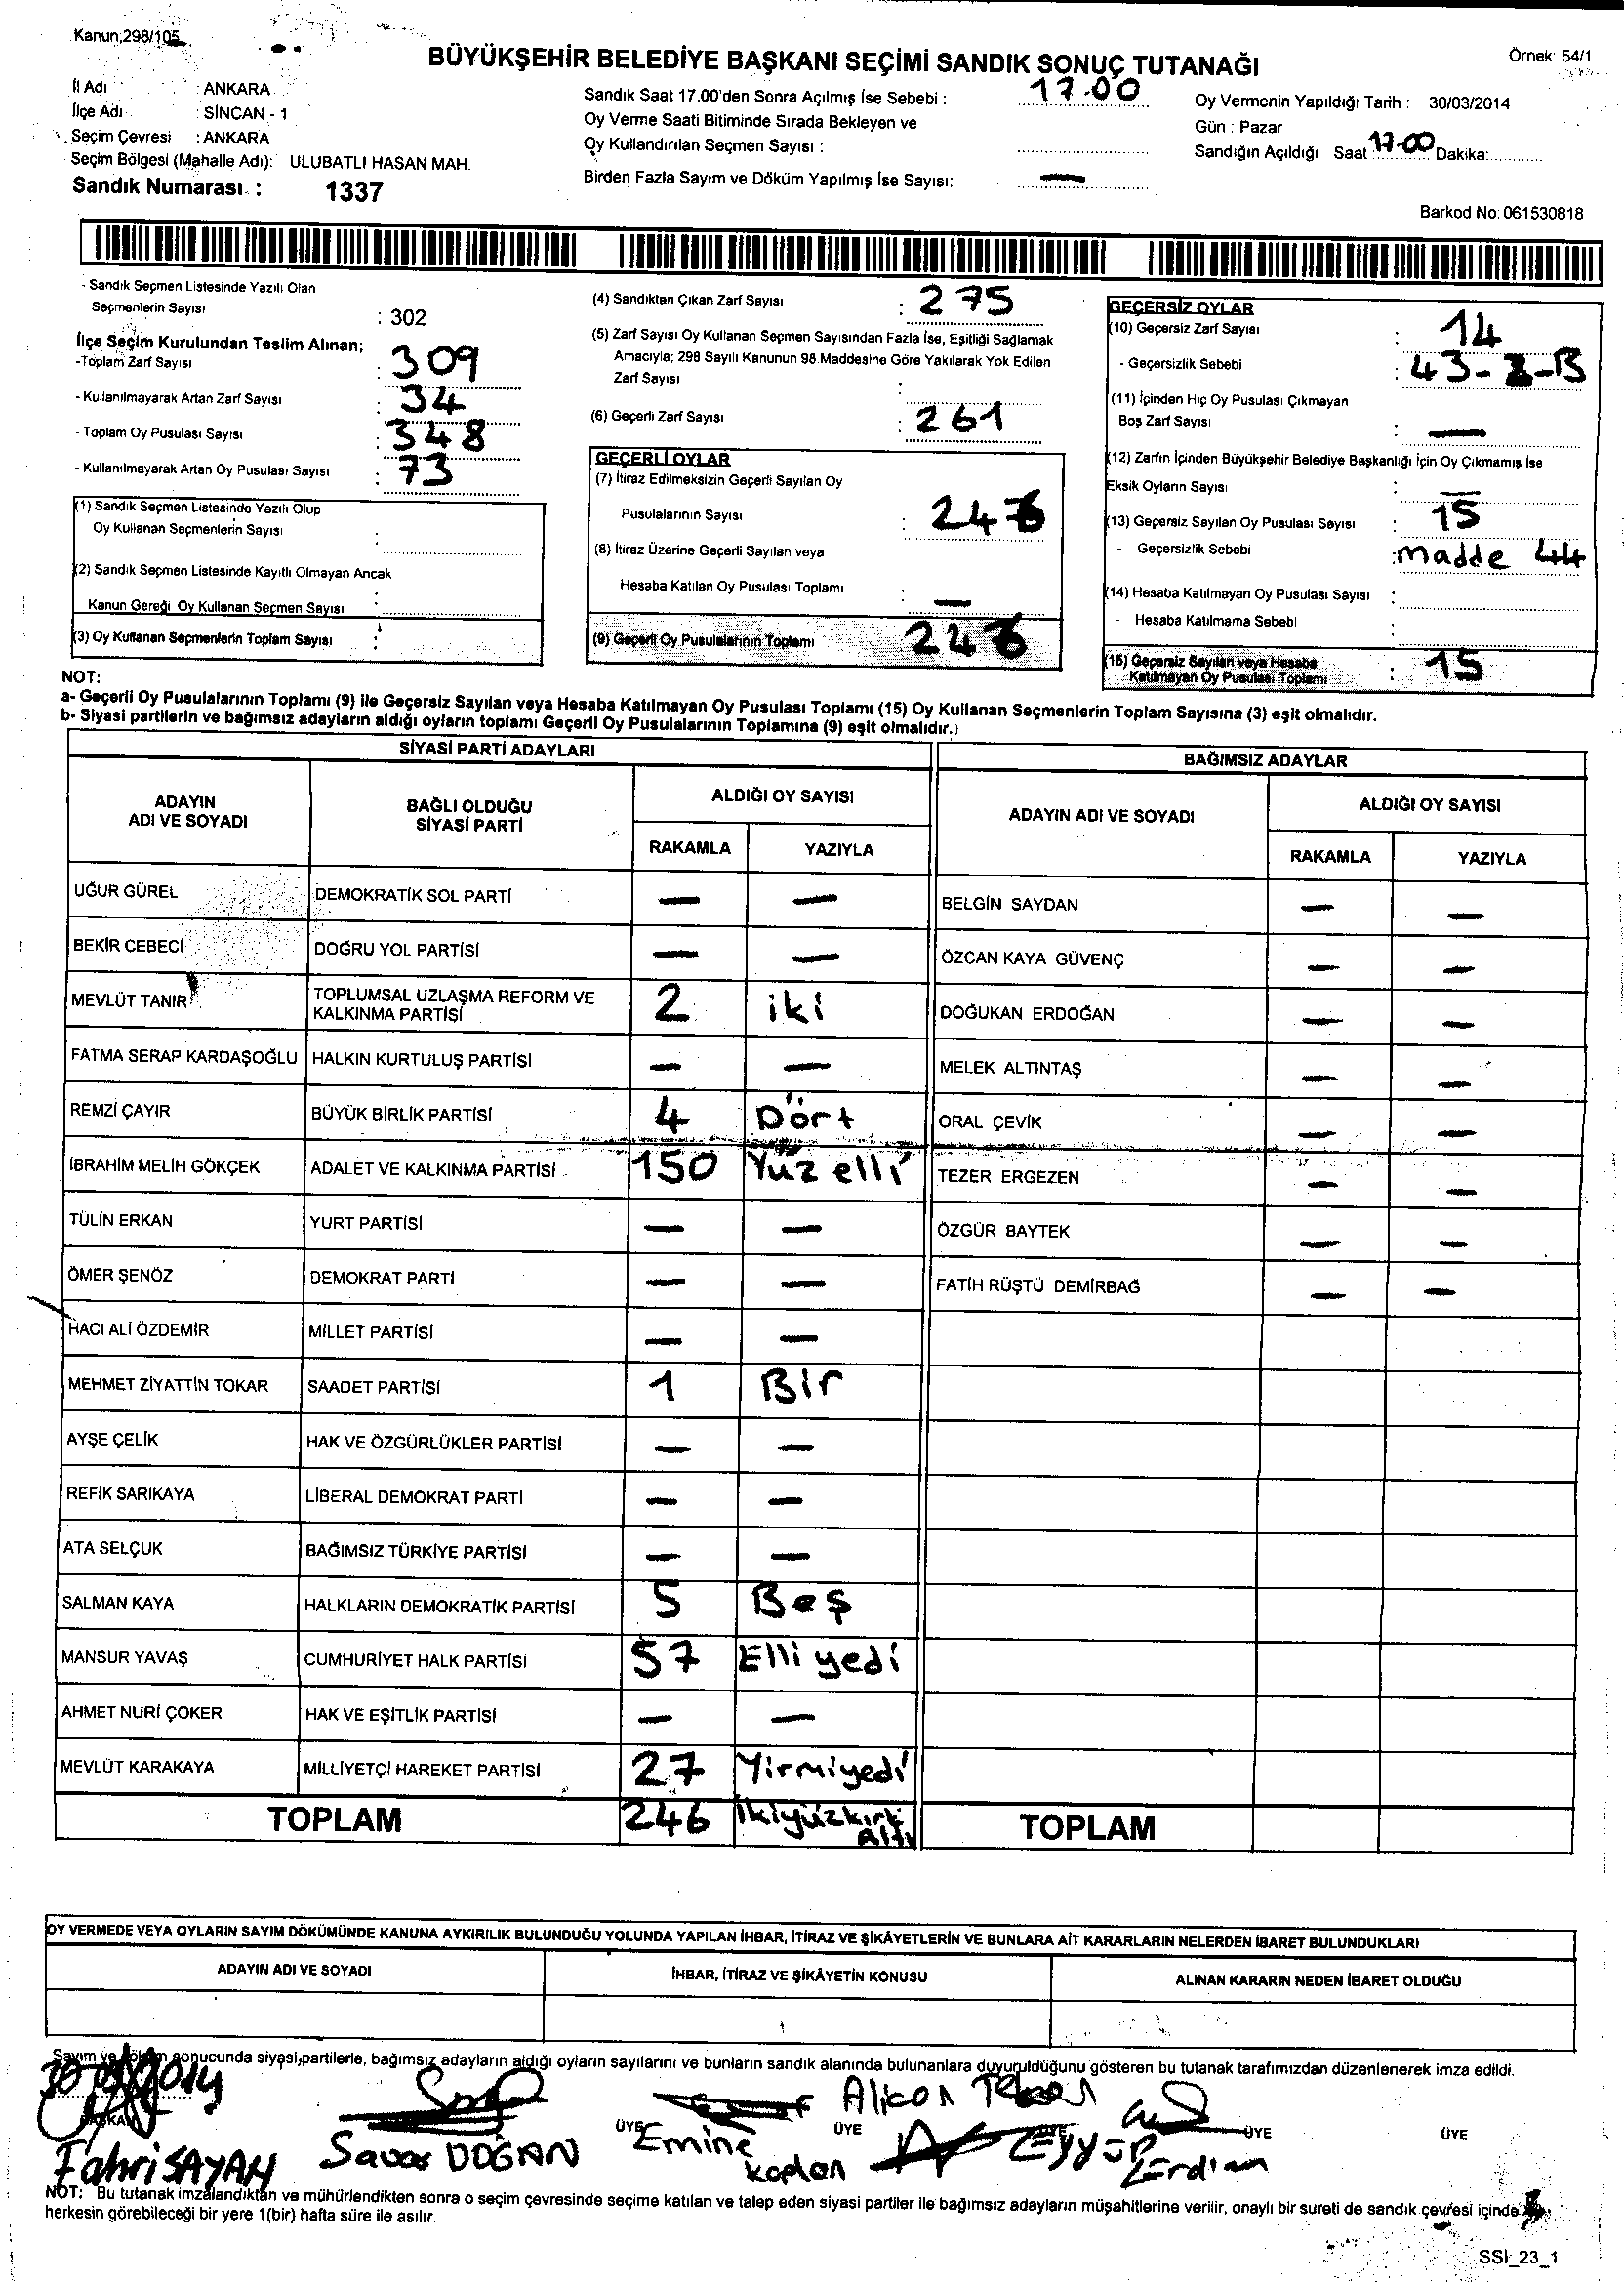 Kanun,298/105
BÜYÜKŞEHİR BELEDİYE BAŞKANI SEÇİMİ SANDIK SONUÇ TUTANAĞI
Örnek: 54/1
İl Adı : ANKARA
İlçe Adı : SİNCAN - 1
Seçim Çevresi : ANKARA
Seçim Bölgesi (Mahalle Adı): ULUBATLI HASAN MAH.
Sandık Numarası : 1337
Sandık Saat 17.00'den Sonra Açılmış İse Sebebi : 17.00
Oy Verme Saati Bitiminde Sırada Bekleyen ve
Oy Kullandırılan Seçmen Sayısı :
Birden Fazla Sayım ve Döküm Yapılmış İse Sayısı: —
Oy Vermenin Yapıldığı Tarih : 30/03/2014
Gün : Pazar
Sandığın Açıldığı Saat 17.00 Dakika:
Barkod No: 061530818
- Sandık Seçmen Listesinde Yazılı Olan
Seçmenlerin Sayısı : 302
İlçe Seçim Kurulundan Teslim Alınan;
-Toplam Zarf Sayısı : 309
- Kullanılmayarak Artan Zarf Sayısı : 34
- Toplam Oy Pusulası Sayısı : 348
- Kullanılmayarak Artan Oy Pusulası Sayısı : 73
(1) Sandık Seçmen Listesinde Yazılı Olup
Oy Kullanan Seçmenlerin Sayısı :
(2) Sandık Seçmen Listesinde Kayıtlı Olmayan Ancak
Kanun Gereği Oy Kullanan Seçmen Sayısı :
(3) Oy Kullanan Seçmenlerin Toplam Sayısı :
(4) Sandıktan Çıkan Zarf Sayısı : 275
(5) Zarf Sayısı Oy Kullanan Seçmen Sayısından Fazla İse, Eşitliği Sağlamak
Amacıyla; 298 Sayılı Kanunun 98.Maddesine Göre Yakılarak Yok Edilen
Zarf Sayısı :
(6) Geçerli Zarf Sayısı : 261
GEÇERLİ OYLAR
(7) İtiraz Edilmeksizin Geçerli Sayılan Oy
Pusulalarının Sayısı : 246
(8) İtiraz Üzerine Geçerli Sayılan veya
Hesaba Katılan Oy Pusulası Toplamı : —
(9) Geçerli Oy Pusulalarının Toplamı 246
GEÇERSİZ OYLAR
(10) Geçersiz Zarf Sayısı : 14
- Geçersizlik Sebebi : 43- -B
(11) İçinden Hiç Oy Pusulası Çıkmayan
Boş Zarf Sayısı : —
(12) Zarfın İçinden Büyükşehir Belediye Başkanlığı İçin Oy Çıkmamış İse
Eksik Oyların Sayısı : —
(13) Geçersiz Sayılan Oy Pusulası Sayısı : 15
- Geçersizlik Sebebi : madde 44
(14) Hesaba Katılmayan Oy Pusulası Sayısı :
- Hesaba Katılmama Sebebi :
(15) Geçersiz Sayılan veya Hesaba
Katılmayan Oy Pusulası Toplamı : 15
NOT:
a- Geçerli Oy Pusulalarının Toplamı (9) ile Geçersiz Sayılan veya Hesaba Katılmayan Oy Pusulası Toplamı (15) Oy Kullanan Seçmenlerin Toplam Sayısına (3) eşit olmalıdır.
b- Siyasi partilerin ve bağımsız adayların aldığı oyların toplamı Geçerli Oy Pusulalarının Toplamına (9) eşit olmalıdır.)
SİYASİ PARTİ ADAYLARI
BAĞIMSIZ ADAYLAR
ADAYIN ADI VE SOYADI
BAĞLI OLDUĞU SİYASİ PARTİ
ALDIĞI OY SAYISI
RAKAMLA YAZIYLA
ADAYIN ADI VE SOYADI
ALDIĞI OY SAYISI
RAKAMLA YAZIYLA
UĞUR GÜREL DEMOKRATİK SOL PARTİ — — BELGİN SAYDAN — —
BEKİR CEBECİ DOĞRU YOL PARTİSİ — — ÖZCAN KAYA GÜVENÇ — —
MEVLÜT TANIR TOPLUMSAL UZLAŞMA REFORM VE KALKINMA PARTİSİ 2 iki DOĞUKAN ERDOĞAN — —
FATMA SERAP KARDAŞOĞLU HALKIN KURTULUŞ PARTİSİ — — MELEK ALTINTAŞ — —
REMZİ ÇAYIR BÜYÜK BİRLİK PARTİSİ 4 Dört ORAL ÇEVİK — —
İBRAHİM MELİH GÖKÇEK ADALET VE KALKINMA PARTİSİ 150 Yüz elli TEZER ERGEZEN — —
TÜLİN ERKAN YURT PARTİSİ — — ÖZGÜR BAYTEK — —
ÖMER ŞENÖZ DEMOKRAT PARTİ — — FATİH RÜŞTÜ DEMİRBAĞ — —
HACI ALİ ÖZDEMİR MİLLET PARTİSİ — —
MEHMET ZİYATTİN TOKAR SAADET PARTİSİ 1 Bir
AYŞE ÇELİK HAK VE ÖZGÜRLÜKLER PARTİSİ — —
REFİK SARIKAYA LİBERAL DEMOKRAT PARTİ — —
ATA SELÇUK BAĞIMSIZ TÜRKİYE PARTİSİ — —
SALMAN KAYA HALKLARIN DEMOKRATİK PARTİSİ 5 Beş
MANSUR YAVAŞ CUMHURİYET HALK PARTİSİ 57 Elli yedi
AHMET NURİ ÇOKER HAK VE EŞİTLİK PARTİSİ — —
MEVLÜT KARAKAYA MİLLİYETÇİ HAREKET PARTİSİ 27 Yirmiyedi
TOPLAM 246 İkiyüzkırk Altı TOPLAM
OY VERMEDE VEYA OYLARIN SAYIM DÖKÜMÜNDE KANUNA AYKIRILIK BULUNDUĞU YOLUNDA YAPILAN İHBAR, İTİRAZ VE ŞİKÂYETLERİN VE BUNLARA AİT KARARLARIN NELERDEN İBARET BULUNDUKLARI
ADAYIN ADI VE SOYADI İHBAR, İTİRAZ VE ŞİKÂYETİN KONUSU ALINAN KARARIN NEDEN İBARET OLDUĞU
Sayım ve döküm sonucunda siyasi partilerle, bağımsız adayların aldığı oyların sayılarını ve bunların sandık alanında bulunanlara duyurulduğunu gösteren bu tutanak tarafımızdan düzenlenerek imza edildi.
BAŞKAN ÜYE ÜYE ÜYE ÜYE ÜYE
Fahri SAYAH
Savaş DOĞAN
Emine Kaplan
Alican
Eyyüp
NOT: Bu tutanak imzalandıktan ve mühürlendikten sonra o seçim çevresinde seçime katılan ve talep eden siyasi partiler ile bağımsız adayların müşahitlerine verilir, onaylı bir sureti de sandık çevresi içinde
herkesin görebileceği bir yere 1(bir) hafta süre ile asılır.
SSI_23_1